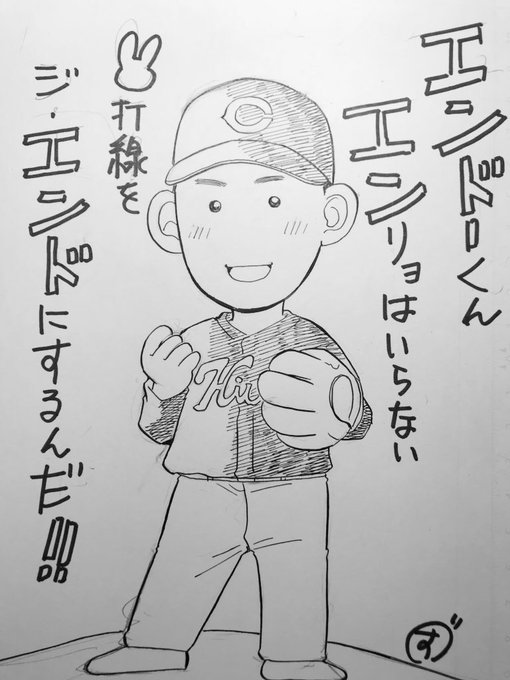 エンドーくん
エンリョはいらない
打線を
ジ・エンドにするんだ!!
C
Hir
ず